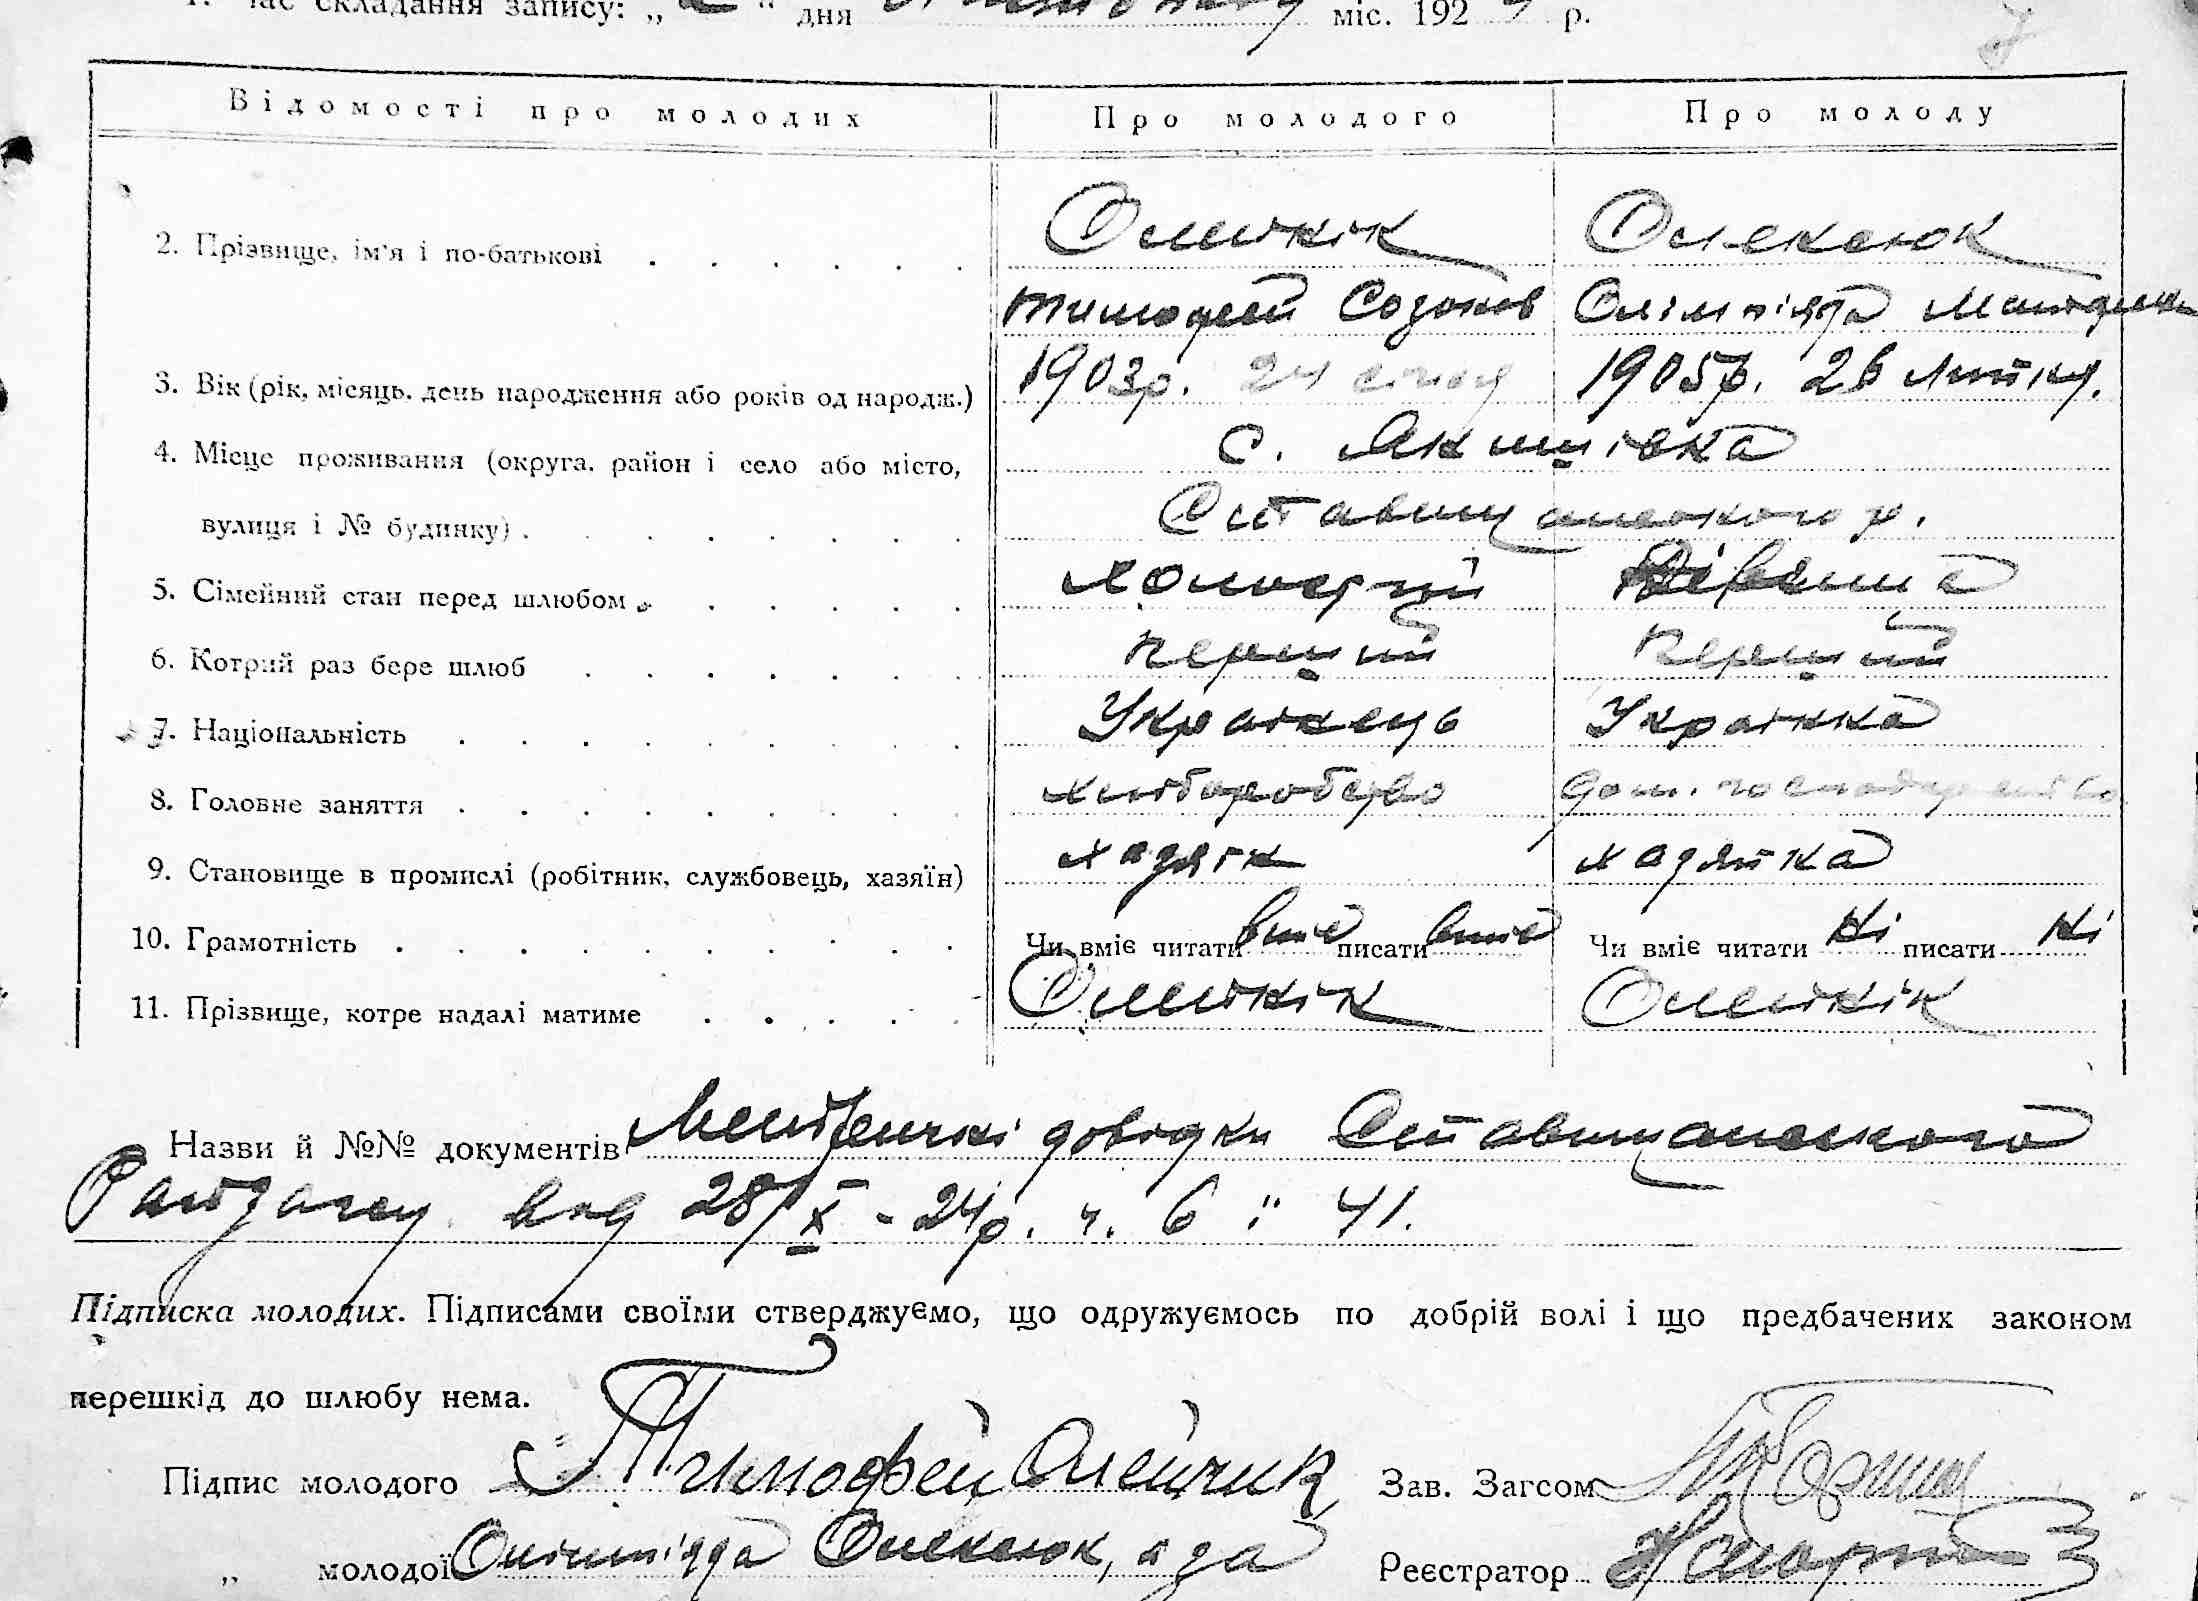 складання запису: „ 2 “ дня Листопаду міс. 1924 р.
Відомості про молодих Про молодого Про молоду
2. Прізвище, ім'я і по-батькові Олейнік Олексюк
Тимофей Созонов Олімпіяда
3. Вік (рік, місяць, день народження або років од народж.) 1903р. 24 січня 1905р. 26 Липня.
4. Місце проживання (округа, район і село або місто, с. Якимівка
вулиця і № будинку) Ставищанського р.
5. Сімейний стан перед шлюбом Холостий Дівиця
6. Котрий раз бере шлюб Перший Перший
7. Національність Українець Українка
8. Головне заняття хліборобство дом. господарство
9. Становище в промислі (робітник, службовець, хазяїн) хазяїн хазяйка
10. Грамотність Чи вміє читати вміє писати вміє Чи вміє читати Ні писати Ні
11. Прізвище, котре надалі матиме Олейнік Олейнік
Назви й №№ документів довідки Ставищанського
від 28/X - 24р. ч. 6 й 41.
Підписка молодих. Підписами своїми стверджуємо, що одружуємось по добрій волі і що предбачених законом
перешкід до шлюбу нема.
Підпис молодого Тимофей Олейник Зав. Загсом
„ молодої Олімпіяда Олексюк, а за Реєстратор